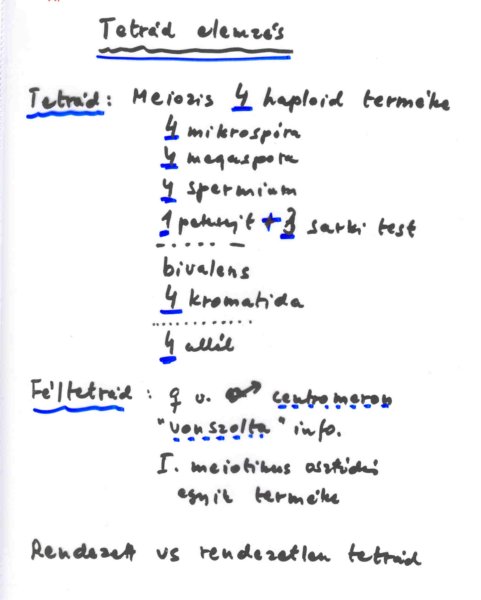 Tetrád elemzés
Tetrád: Meiozis 4 haploid terméke
4 mikrospóra
4 megaspora
4 spermium
1 petesejt + 3 sarki test
bivalens
4 kromatida
4 allél
Féltetrád: ♀ v. ♂ centromeron
"vonszolta" info.
I. meiotikus osztódás
egyik terméke
Rendezett vs rendezetlen tetrád